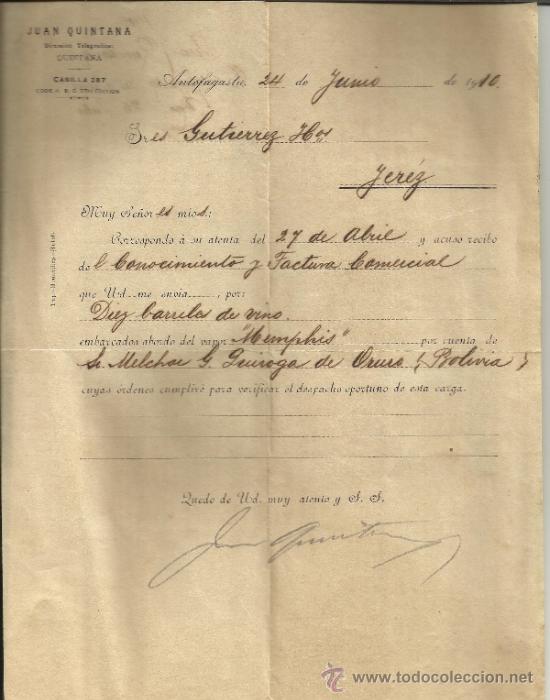 JUAN QUINTANA
Dirección Telegráfica:
QUINTANA
CASILLA 287
CODE A. B. C. 5TH EDITION
Antofagasta, 24 de Junio de 1910.
Sres Gutierrez Hos
Jeréz
Muy Señores mios:
Correspondo á su atenta del 27 de Abril y acuso recibo
del Conocimiento y Factura Comercial
que Ud. me envia, por:
Diez barriles de vino.
embarcados abordo del vapor "Memphis" por cuenta de
Sr. Melchor G. Quiroga de Oruro (Bolivia)
cuyas órdenes cumpliré para verificar el despacho oportuno de esta carga.
Quedo de Ud. muy atento y S. S.
Juan Quintana
todocoleccion
www.todocoleccion.net